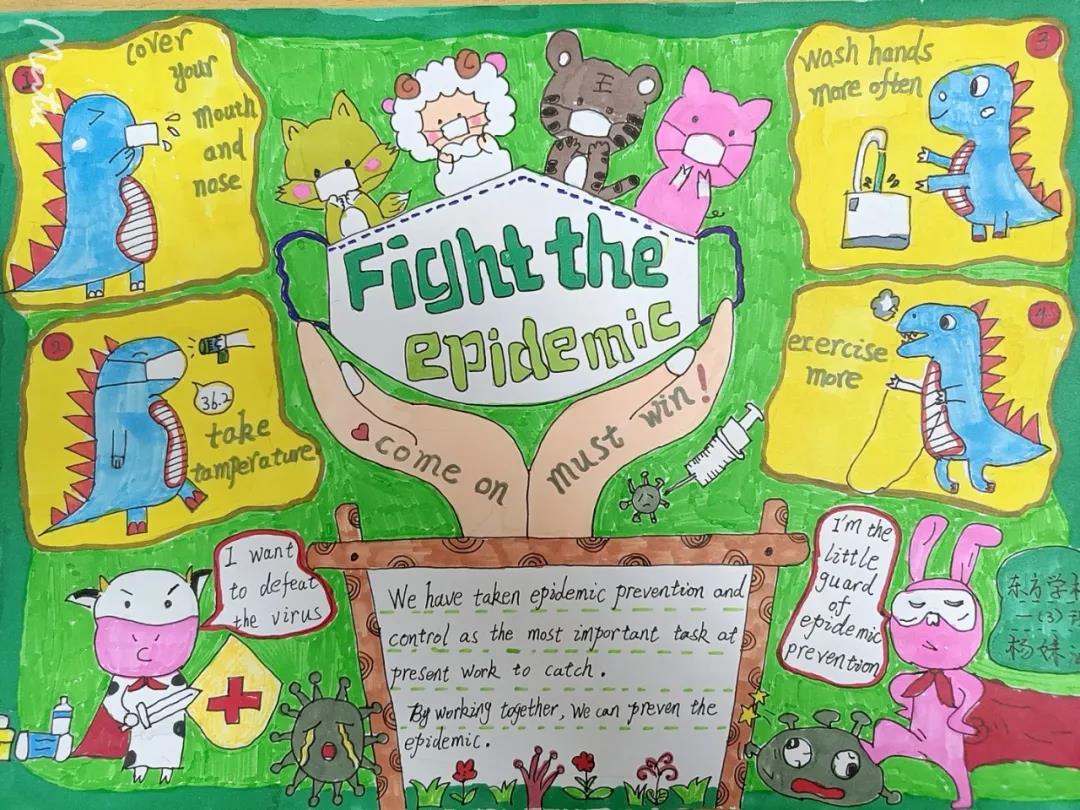 1
cover
your
mouth
and
nose
3
wash hands
more often
王
Fight the
epidemic
2
36.2
take
tamperature
4.
exercise
more
come on
must win!
I want
to defeat
the virus
I'm the
little
guard
of
epidemic
prevention
We have taken epidemic prevention and
control as the most important task at
present work to catch.
By working together, We can preven the
epidemic.
东方学
一(3)
杨妹